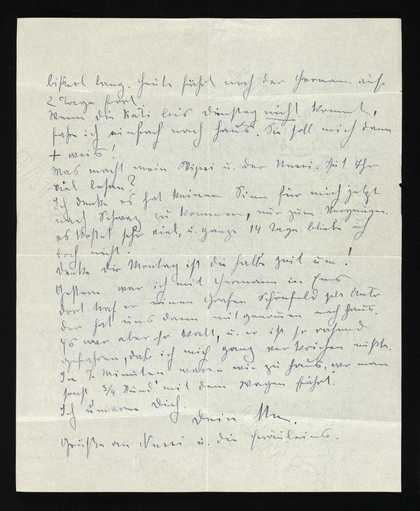 lichst lang. Heute fährt noch der Hermann auf
2 Tage fort.
Wenn die Kati bis Dienstag nicht kommt,
fahr ich einfach nach Haus. Sie soll mich dann
Was macht mein u. der Habt Ihr
viel
Ich denke es hat keinen Sinn für mich jetzt
nach zu kommen, nur zum Vergnügen.
es kostet sehr viel, u. ganze 14 Tage bliebe ich
doch nicht.
Denke Dir Montag ist die halbe Zeit um!
Gestern war ich mit Hermann in
dort traf er einen Grafen Schönfeld
der hat uns dann mitgenommen nach Haus.
Es war aber sehr kalt, u. er ist so rasend
gefahren, daß ich mich ganz verkriechen mußte.
In 7 Minuten waren wir zu Haus, wo man
sonst 3/4 Stund mit dem Wagen fährt.
Ich umarme Dich.
Dein
Grüße an u. die Fräuleins.